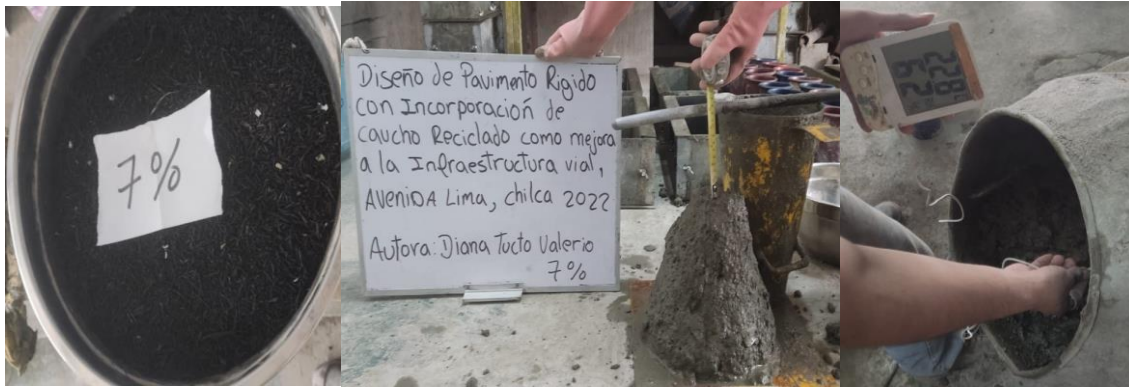 7%
Diseño de Pavimento Rigido
con Incorporación de
caucho Reciclado como mejora
a la Infraestructura vial,
AVENIDA Lima, chilca 2022
Autora: Diana Tucto Valerio
7%